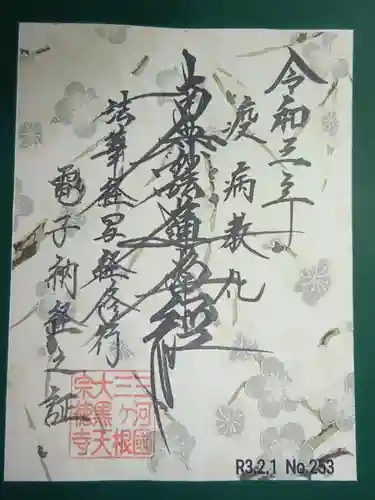 令和三年
疫病救札
南無妙法蓮華経
法華経写経修行
電子納経之証
三河國
三ヶ根
大黒天
宗徳寺
R3.2.1 No.253